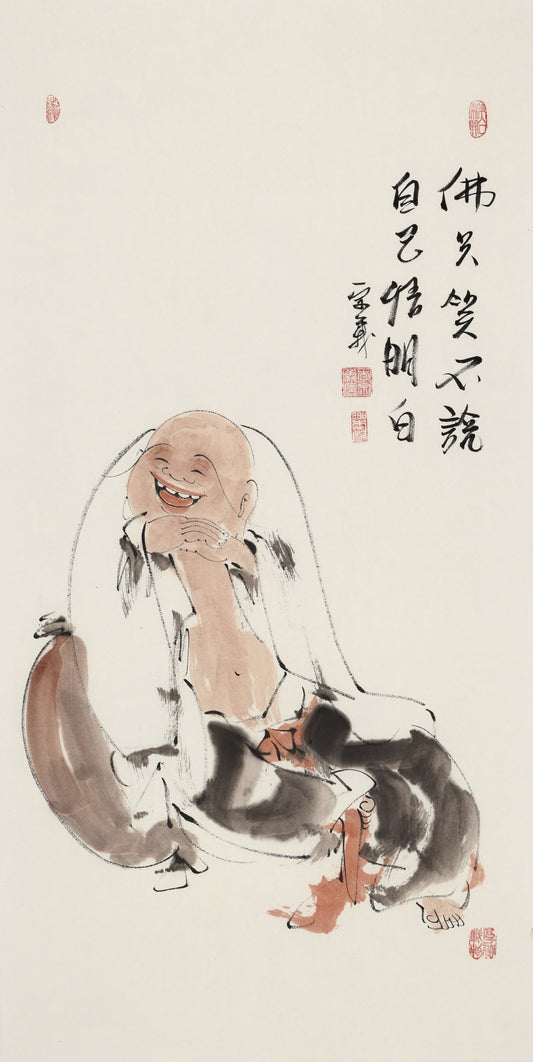 佛只笑不説
自己悟明白
宗義